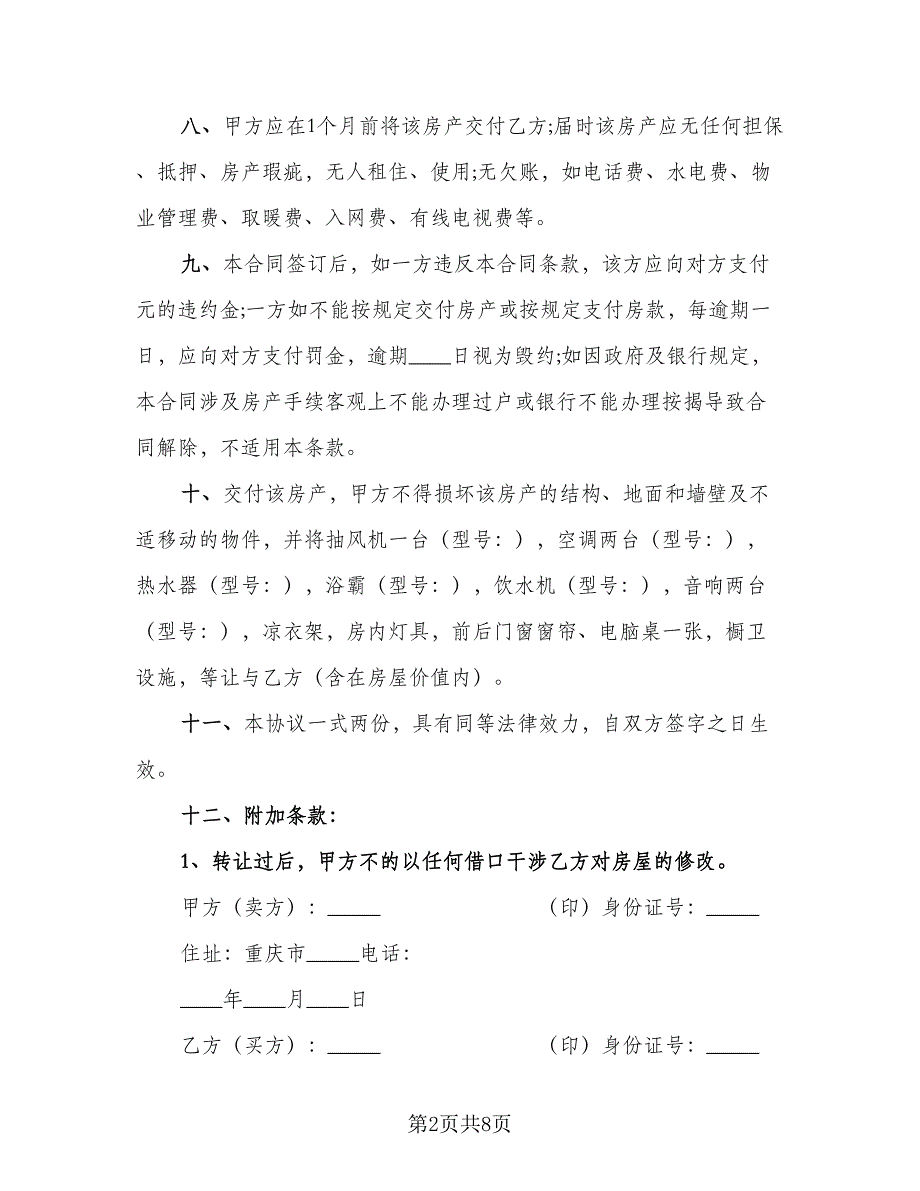 八、甲方应在1个月前将该房产交付乙方;届时该房产应无任何担保
、抵押、房产瑕疵，无人租住、使用;无欠账，如电话费、水电费、物
业管理费、取暖费、入网费、有线电视费等。
九、本合同签订后，如一方违反本合同条款，该方应向对方支付
元的违约金;一方如不能按规定交付房产或按规定支付房款，每逾期一
日，应向对方支付罚金，逾期____日视为毁约;如因政府及银行规定，
本合同涉及房产手续客观上不能办理过户或银行不能办理按揭导致合
同解除，不适用本条款。
十、交付该房产，甲方不得损坏该房产的结构、地面和墙壁及不
适移动的物件，并将抽风机一台（型号：），空调两台（型号：），
热水器（型号：），浴霸（型号：），饮水机（型号：），音响两台
（型号：），凉衣架，房内灯具，前后门窗窗帘、电脑桌一张，橱卫
设施，等让与乙方（含在房屋价值内）。
十一、本协议一式两份，具有同等法律效力，自双方签字之日生
效。
十二、附加条款：
1、转让过后，甲方不的以任何借口干涉乙方对房屋的修改。
甲方（卖方）：_____ （印）身份证号：_____
住址：重庆市_____电话：
____年____月____日
乙方（买方）：_____ （印）身份证号：_____
第2页共8页